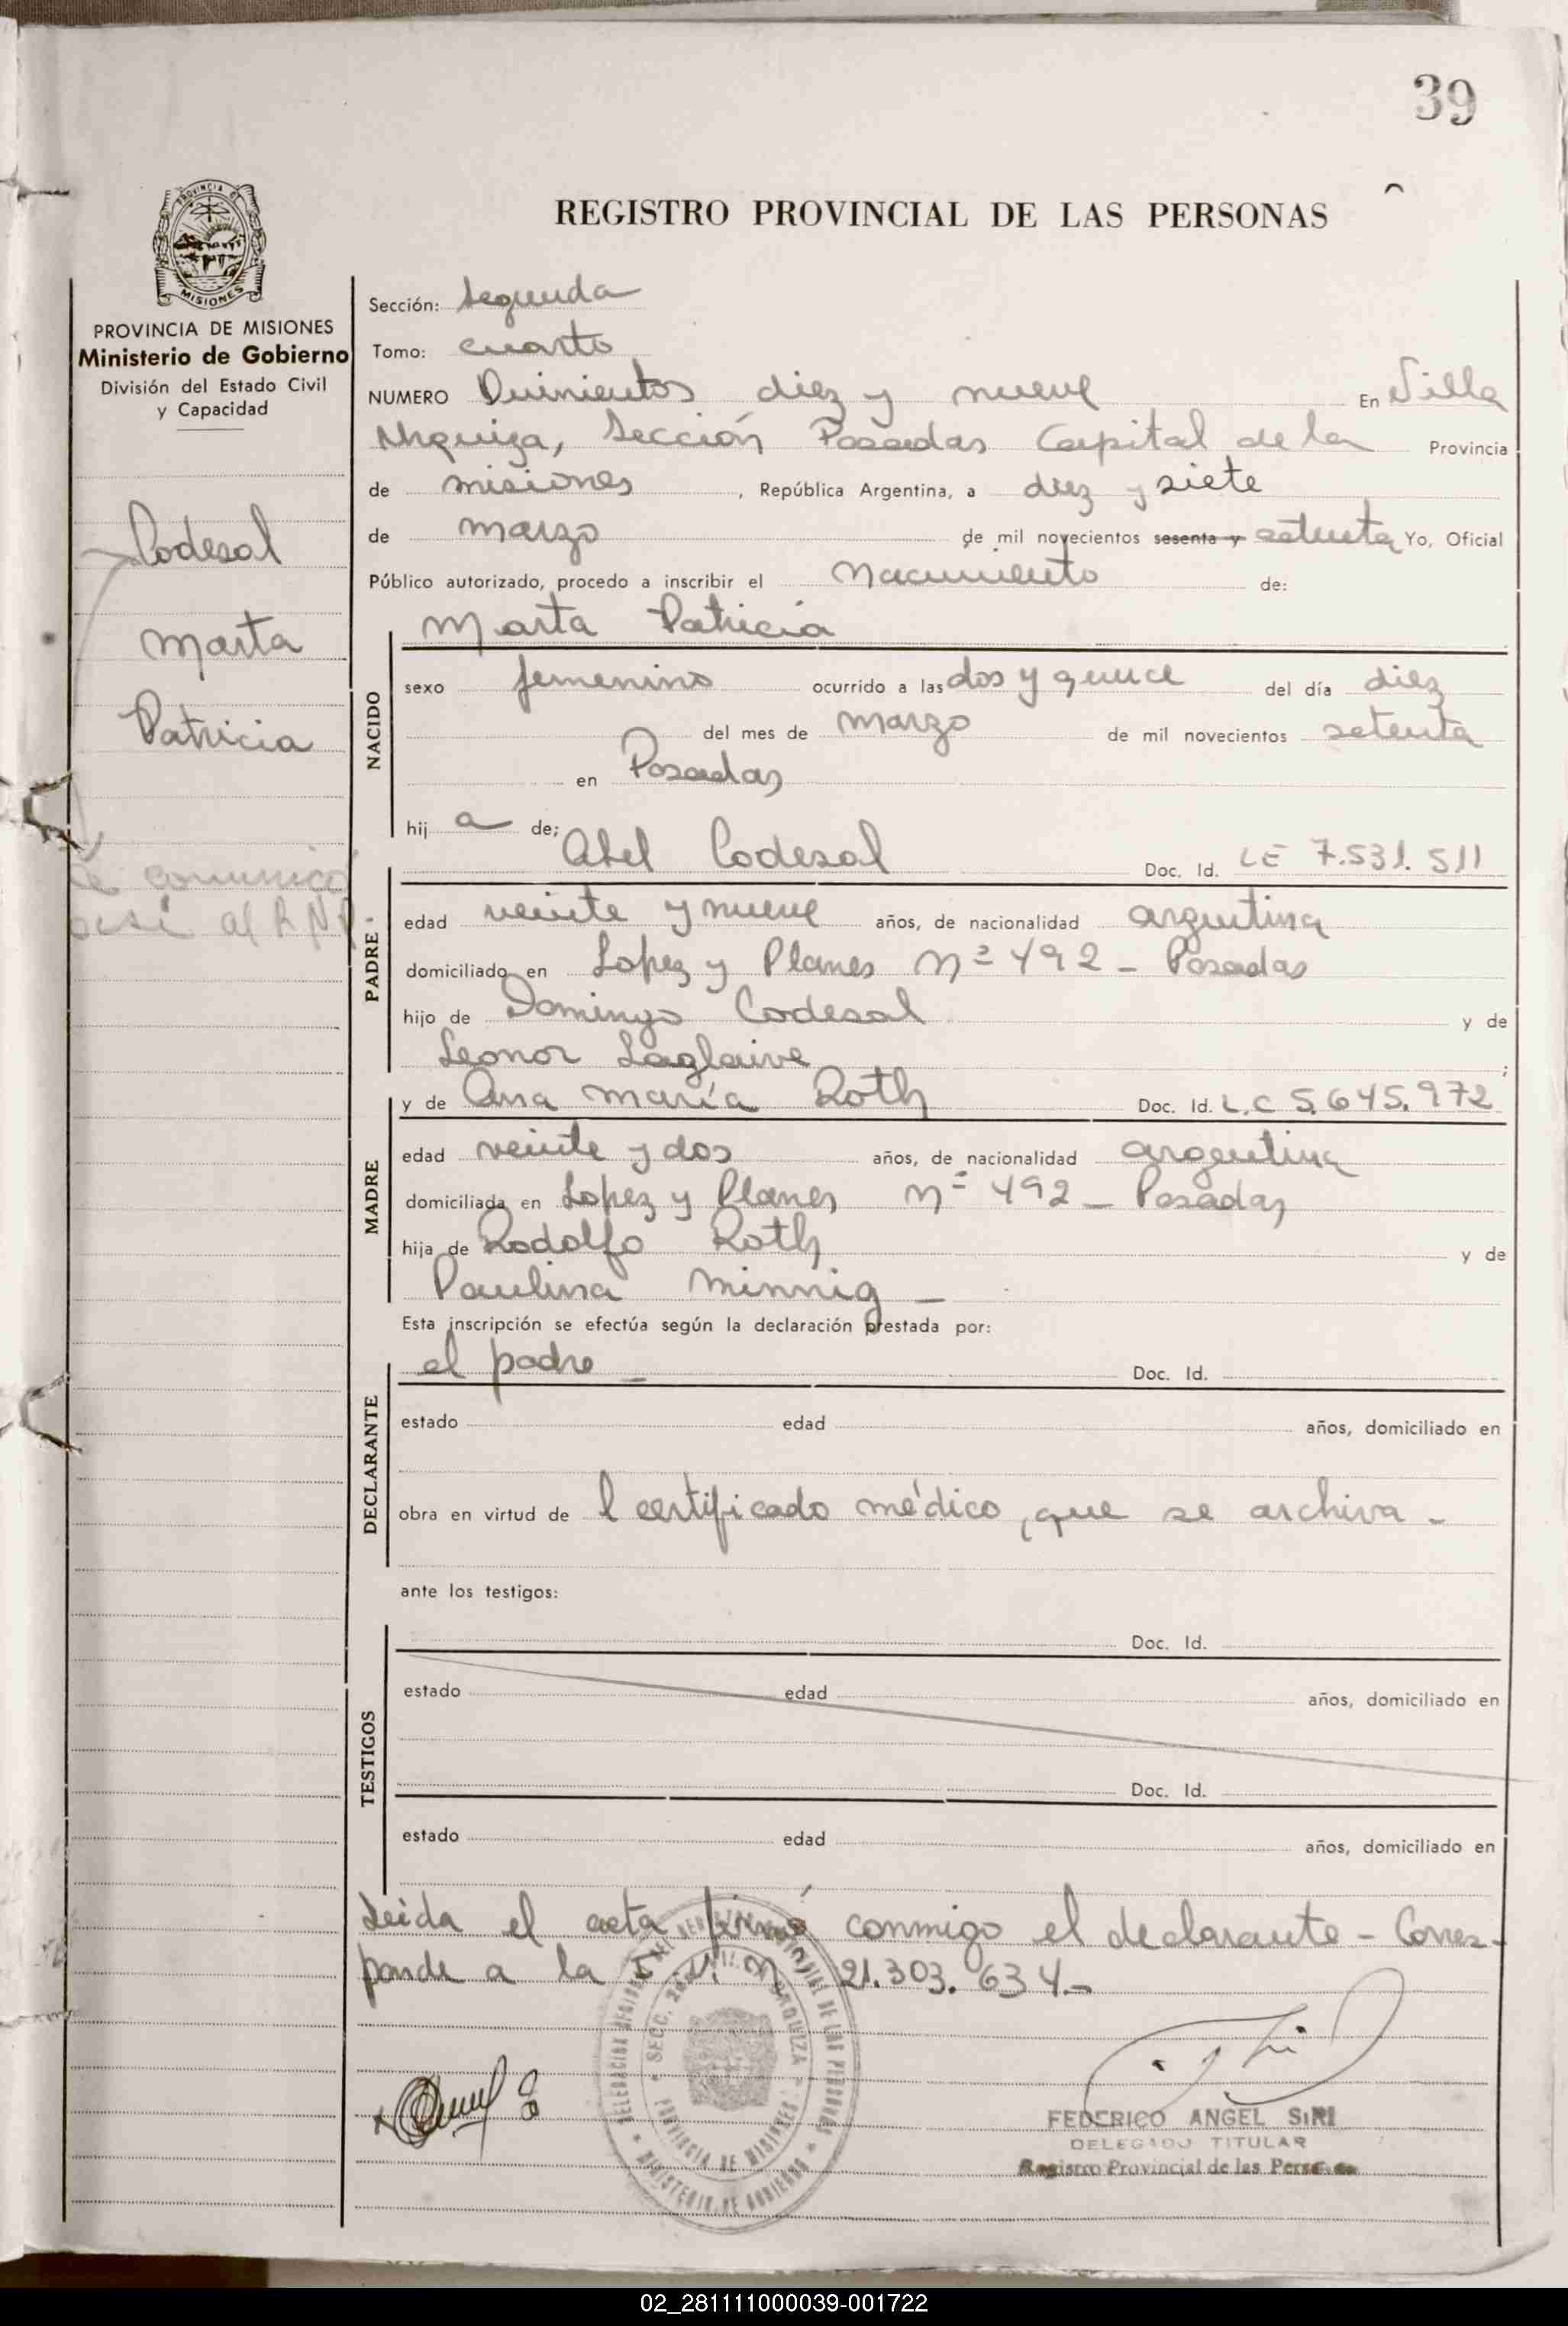 39
REGISTRO PROVINCIAL DE LAS PERSONAS
PROVINCIA DE
MISIONES
PROVINCIA DE MISIONES
Ministerio de Gobierno
División del Estado Civil
y Capacidad
Codesal
Marta
Patricia
Se comunicó
al RNP.
Sección: Segunda
Tomo: cuarto
NUMERO Quinientos diez y nueve En Villa
Urquiza, Sección Posadas Capital de la Provincia
de misiones, República Argentina, a diez y siete
de marzo de mil novecientos sesenta y setenta Yo, Oficial
Público autorizado, procedo a inscribir el Nacimiento de:
Marta Patricia
NACIDO
sexo femenino ocurrido a las dos y quince del día diez
del mes de marzo de mil novecientos setenta
en Posadas
hij a de;
Abel Codesal Doc. Id. LE 7.531.511
PADRE
edad veinte y nueve años, de nacionalidad argentina
domiciliado en Lopez y Planes Nº 492 - Posadas
hijo de Domingo Codesal y de
Leonor Laglaive ;
y de Ana maría Roth Doc. Id. L.C 5.645.972
MADRE
edad veinte y dos años, de nacionalidad argentina
domiciliada en Lopez y Planes nº 492 - Posadas
hija de Rodolfo Roth y de
Paulina Minnig -
Esta inscripción se efectúa según la declaración prestada por:
el padre - Doc. Id.
DECLARANTE
estado edad años, domiciliado en
obra en virtud de l certificado médico, que se archiva -
ante los testigos:
Doc. Id.
TESTIGOS
estado edad años, domiciliado en
Doc. Id.
estado edad años, domiciliado en
Leida el acta firmó conmigo el declarante - Corres-
ponde a la I. Nº 21.303.634.-
DELEGACION DEL REGISTRO PROVINCIAL DE LAS PERSONAS
MINISTERIO DE GOBIERNO
SECC. 2a VILLA URQUIZA
PROVINCIA DE MISIONES
FEDERICO ANGEL SIRI
DELEGADO TITULAR
Registro Provincial de las Personas
02_281111000039-001722